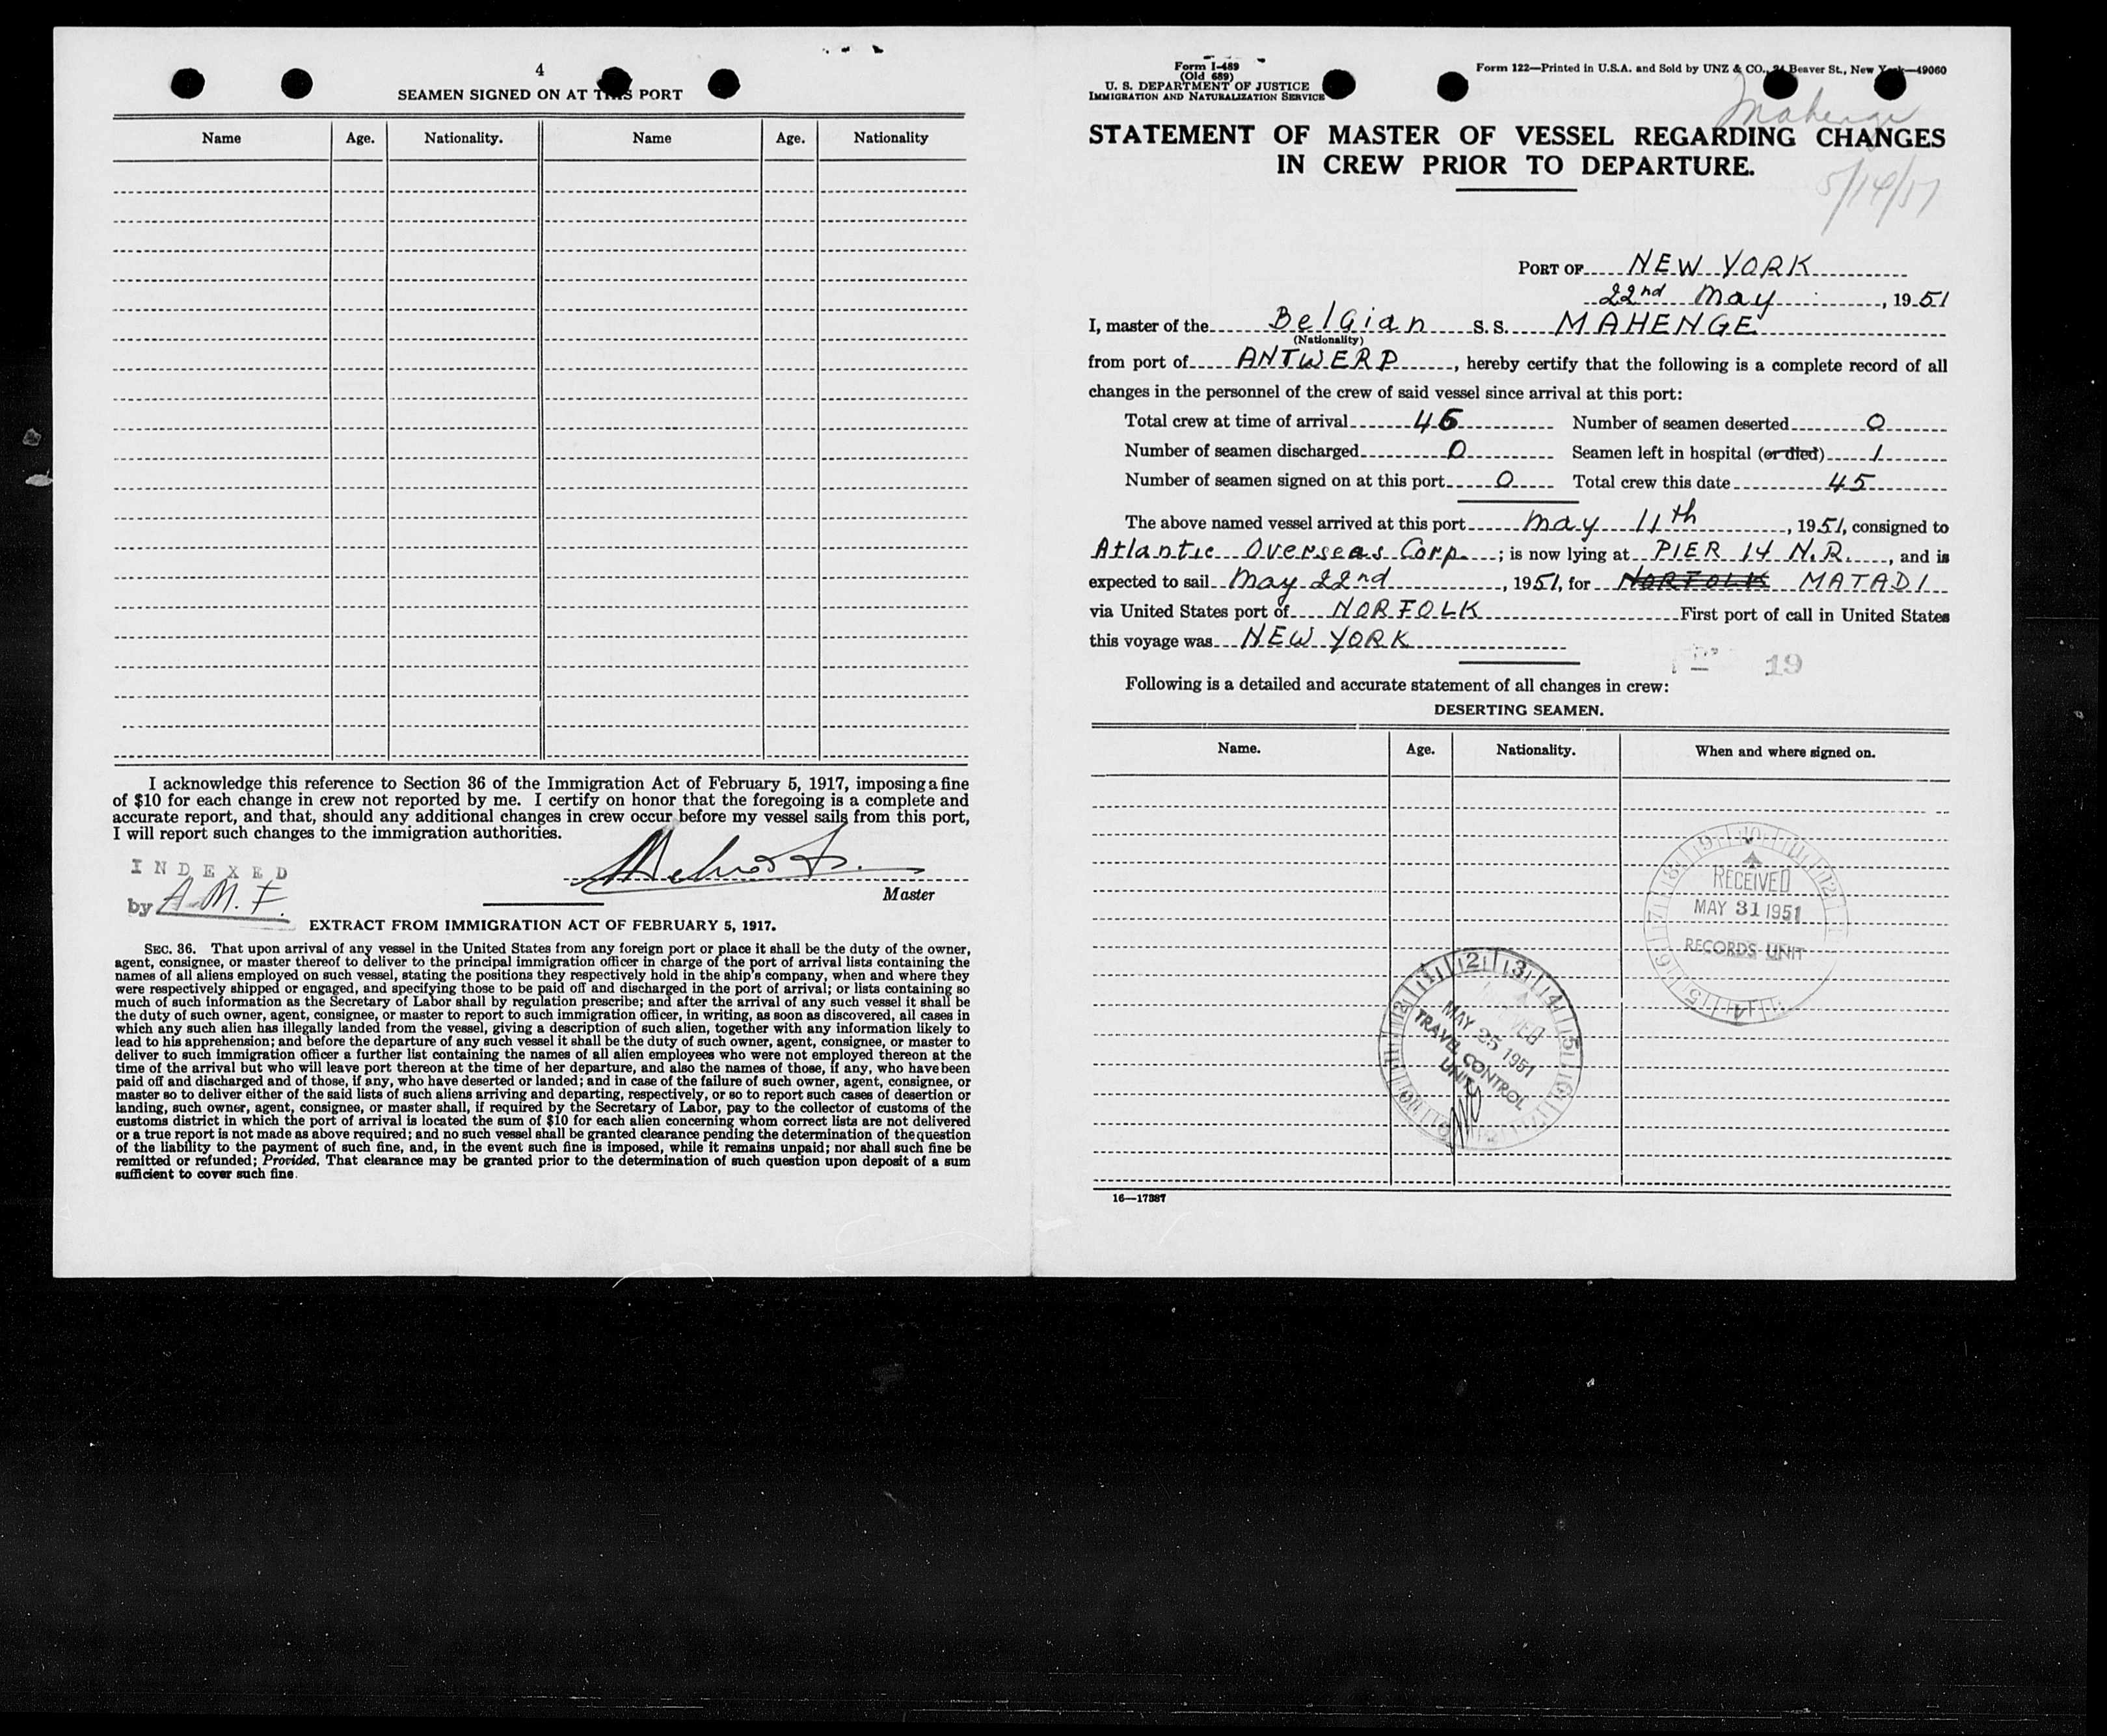 4
SEAMEN SIGNED ON AT THIS PORT
Name Age. Nationality. Name Age. Nationality
I acknowledge this reference to Section 36 of the Immigration Act of February 5, 1917, imposing a fine
of $10 for each change in crew not reported by me. I certify on honor that the foregoing is a complete and
accurate report, and that, should any additional changes in crew occur before my vessel sails from this port,
I will report such changes to the immigration authorities.
INDEXED
by A.M.F.
Master
EXTRACT FROM IMMIGRATION ACT OF FEBRUARY 5, 1917.
SEC. 36. That upon arrival of any vessel in the United States from any foreign port or place it shall be the duty of the owner,
agent, consignee, or master thereof to deliver to the principal immigration officer in charge of the port of arrival lists containing the
names of all aliens employed on such vessel, stating the positions they respectively hold in the ship's company, when and where they
were respectively shipped or engaged, and specifying those to be paid off and discharged in the port of arrival; or lists containing so
much of such information as the Secretary of Labor shall by regulation prescribe; and after the arrival of any such vessel it shall be
the duty of such owner, agent, consignee, or master to report to such immigration officer, in writing, as soon as discovered, all cases in
which any such alien has illegally landed from the vessel, giving a description of such alien, together with any information likely to
lead to his apprehension; and before the departure of any such vessel it shall be the duty of such owner, agent, consignee, or master to
deliver to such immigration officer a further list containing the names of all alien employees who were not employed thereon at the
time of the arrival but who will leave port thereon at the time of her departure, and also the names of those, if any, who have been
paid off and discharged and of those, if any, who have deserted or landed; and in case of the failure of such owner, agent, consignee, or
master so to deliver either of the said lists of such aliens arriving and departing, respectively, or so to report such cases of desertion or
landing, such owner, agent, consignee, or master shall, if required by the Secretary of Labor, pay to the collector of customs of the
customs district in which the port of arrival is located the sum of $10 for each alien concerning whom correct lists are not delivered
or a true report is not made as above required; and no such vessel shall be granted clearance pending the determination of the question
of the liability to the payment of such fine, and, in the event such fine is imposed, while it remains unpaid; nor shall such fine be
remitted or refunded; Provided, That clearance may be granted prior to the determination of such question upon deposit of a sum
sufficient to cover such fine.
Form I-489
(Old 689)
U. S. DEPARTMENT OF JUSTICE
IMMIGRATION AND NATURALIZATION SERVICE
Form 122—Printed in U.S.A. and Sold by UNZ & CO., 24 Beaver St., New York—49060
Mahenge
STATEMENT OF MASTER OF VESSEL REGARDING CHANGES
IN CREW PRIOR TO DEPARTURE.
PORT OF NEW YORK
22nd May, 1951
I, master of the Belgian S.S. MAHENGE
(Nationality)
from port of ANTWERP, hereby certify that the following is a complete record of all
changes in the personnel of the crew of said vessel since arrival at this port:
Total crew at time of arrival 46 Number of seamen deserted 0
Number of seamen discharged 0 Seamen left in hospital (or died) 1
Number of seamen signed on at this port 0 Total crew this date 45
The above named vessel arrived at this port May 11th, 1951, consigned to
Atlantic Overseas Corp.; is now lying at PIER 14 N.R., and is
expected to sail May 22nd, 1951, for NORFOLK MATADI
via United States port of NORFOLK First port of call in United States
this voyage was NEW YORK
19
Following is a detailed and accurate statement of all changes in crew:
DESERTING SEAMEN.
Name. Age. Nationality. When and where signed on.
RECEIVED
MAY 31 1951
RECORDS UNIT
RECEIVED
MAY 25 1951
TRAVEL CONTROL
UNIT
16—17387